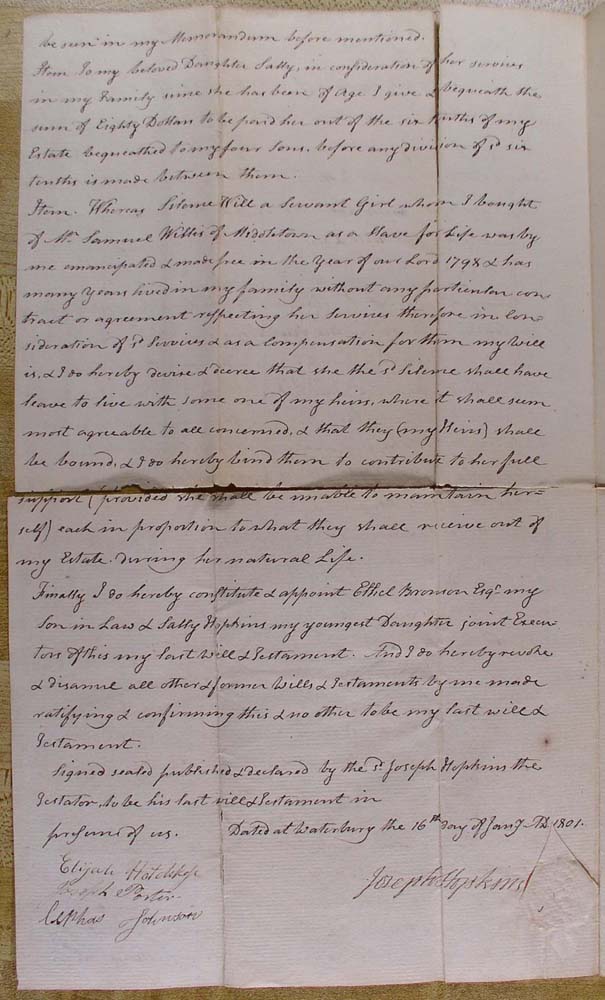 be seen in my Memorandum before mentioned.
Item To my beloved Daughter Sally, in consideration of her services
in my Family since she has been of Age I give & bequeath the
sum of Eighty Dollars to be paid her out of the six tenths of my
Estate bequeathed to my four Sons. before any division of sd six
tenths is made between them.
Item. Whereas Silence Will a Servant Girl whom I bought
of Mr Samuel Willis of Middletown as a Slave for Life was by
me emancipated & made free in the Year of our Lord 1798 & has
many Years lived in my family without any particular con-
tract or agreement respecting her Services therefore in Con-
sideration of sd Services & as a Compensation for them my Will
is, & I do hereby devise & decree that she the sd Silence shall have
leave to live with some one of my heirs, where it shall seem
most agreeable to all concerned, & that they (my Heirs) shall
be bound, & I do hereby bind them to contribute to her full
support (provided she shall be unable to maintain her=
self) each in proportion to what they shall receive out of
my Estate. during her natural Life.
Finally I do hereby constitute & appoint Ethel Bronson Esqr my
Son in Law & Sally Hopkins my youngest Daughter joint Execu-
tors of this my last Will & Testament. And I do hereby revoke
& disannul all other & former Wills & Testaments by me made
ratifying & confirming this & no other to be my last will &
Testament.
Signed sealed published & declared by the sd Joseph Hopkins the
Testator, to be his last will & Testament in
presence of us. Dated at Waterbury the 16th day of Jany AD. 1801.
Elijah Hotchkiss
Joseph Hopkins
Joseph Porter
Cephas Johnson